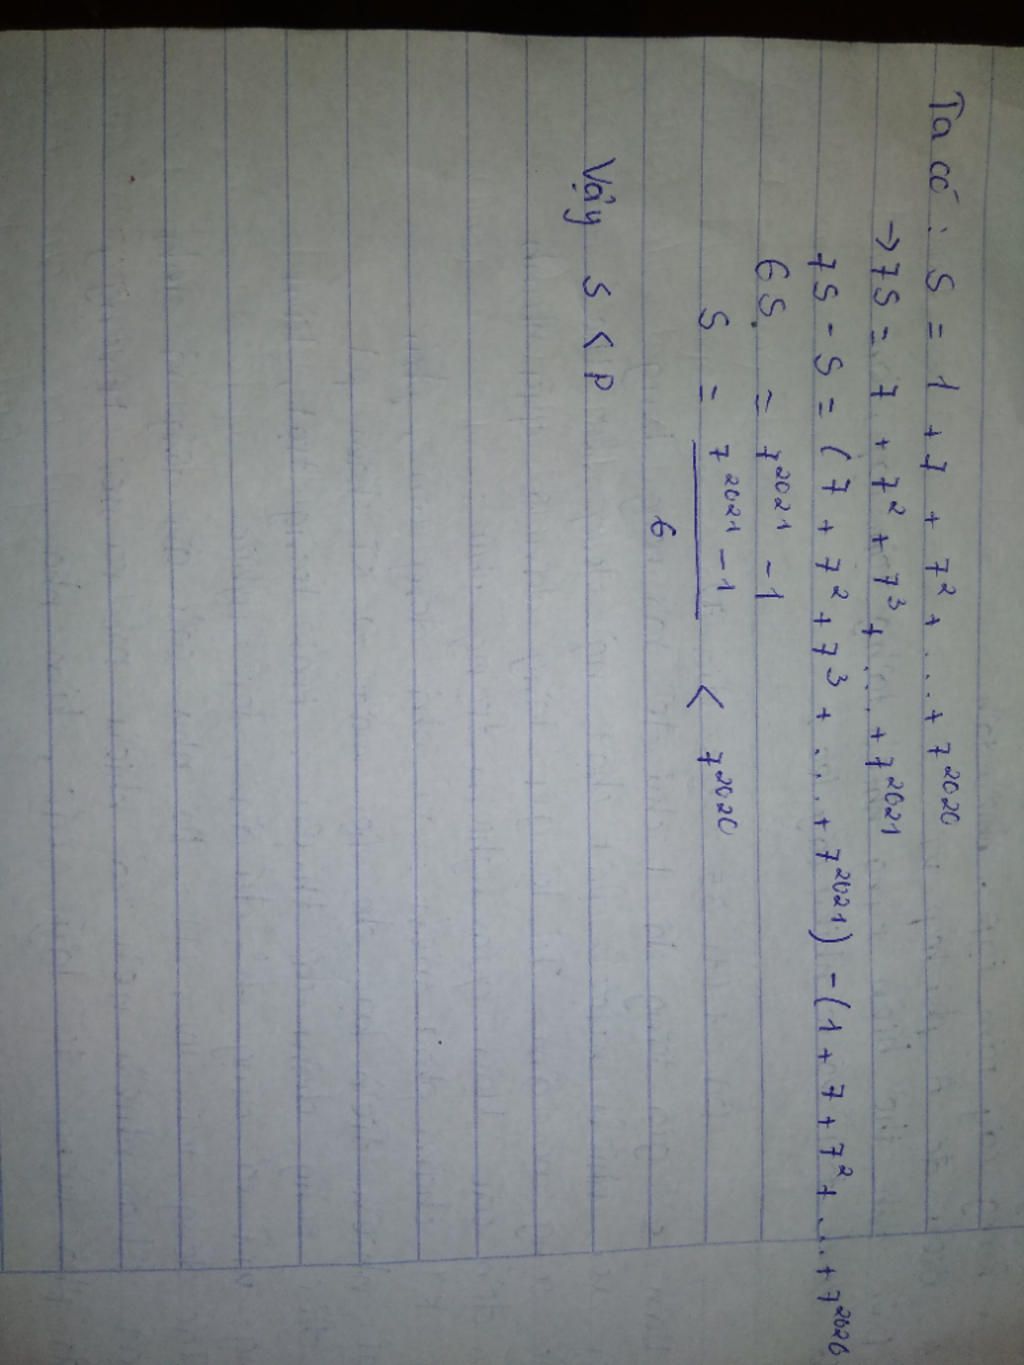 Ta có : S = 1 + 7 + 7² + ... + 7²⁰²⁰
→ 7S = 7 + 7² + 7³ + ... + 7²⁰²¹
7S - S = (7 + 7² + 7³ + ... + 7²⁰²¹) - (1 + 7 + 7² + ... + 7²⁰²⁰
6S = 7²⁰²¹ - 1
S = (7²⁰²¹ - 1)/6 < 7²⁰²⁰
Vậy S < P